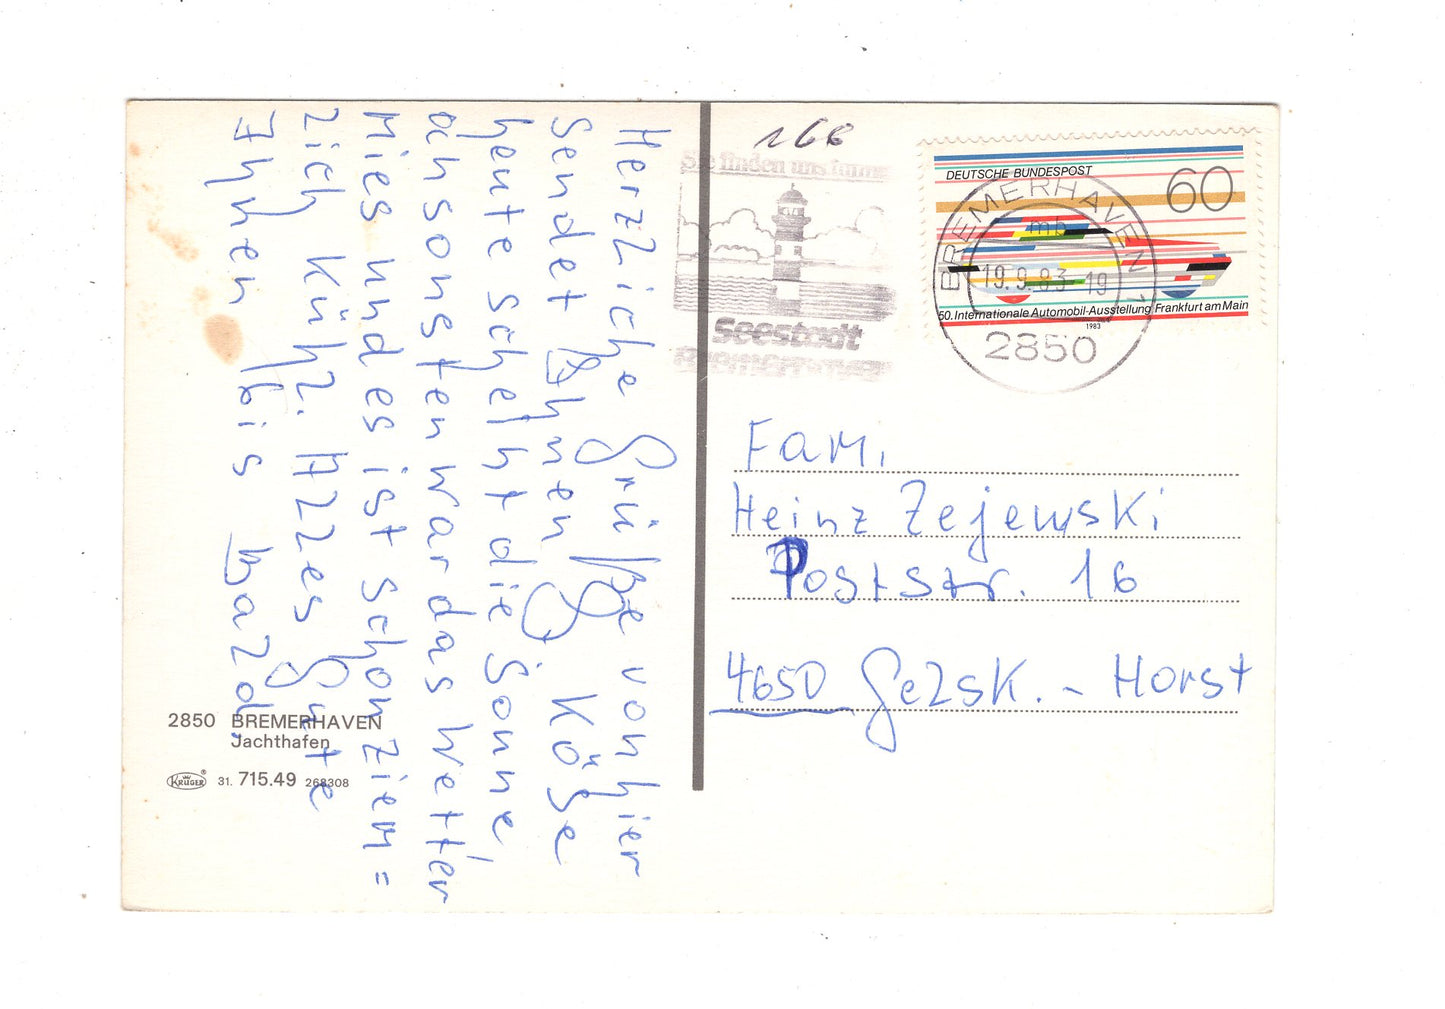 Herzliche Grüße von hier
sendet Ihnen G. Köße
heute scheint die Sonne,
ansonsten war das Wetter
mies und es ist schon ziem=
lich kühl. Alles Gute
Ihnen / bis bald.
2850 BREMERHAVEN
Jachthafen
KRÜGER® 31. 715.49 268308
166
Sie finden uns immer
Seestadt
BREMERHAVEN
DEUTSCHE BUNDESPOST
60
50. Internationale Automobil-Ausstellung Frankfurt am Main
1983
BREMERHAVEN 1
mb
19.9.83-19
2850
Fam.
Heinz Zejewski
Poststr. 16
4650 Gelsk. - Horst